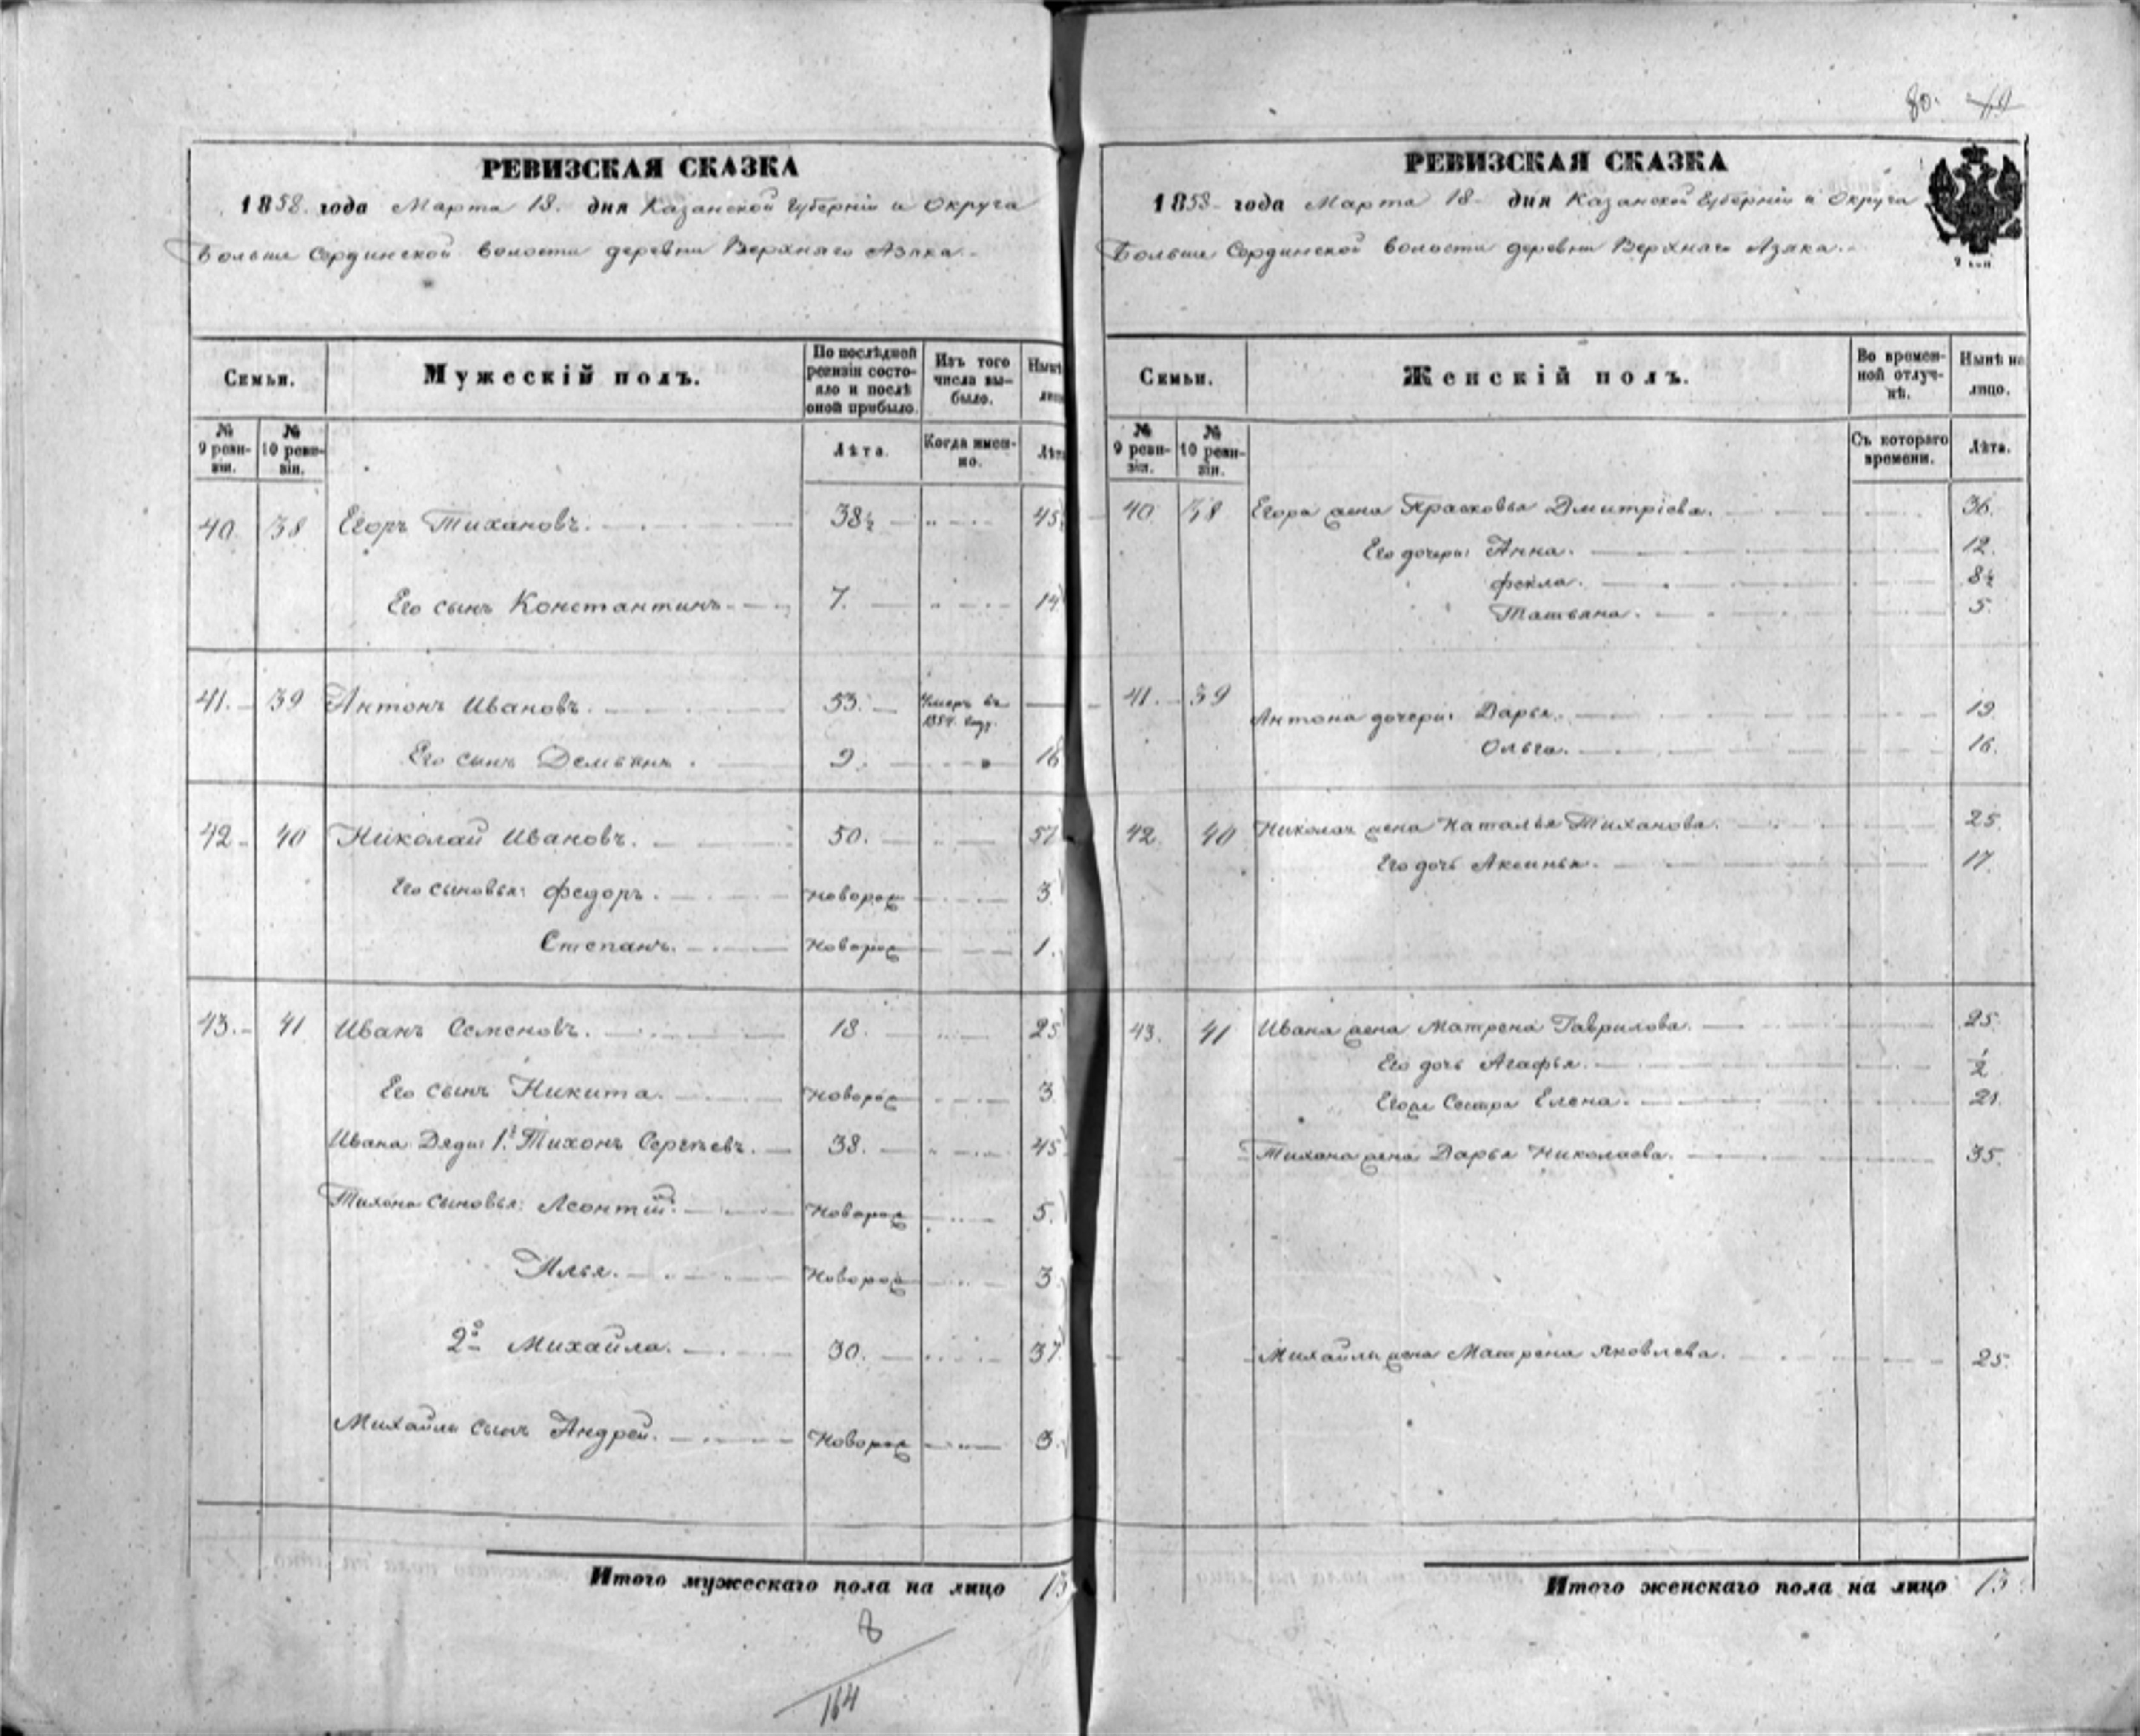 80. 79
РЕВИЗСКАЯ СКАЗКА
1858. года Марта 18. дня Казанской Губерніи и Округа
Больше Сердинской волости деревни Верхняго Азяка.
Семьи. Мужескій полъ. По послѣдней ревизіи состояло и послѣ оной прибыло. Изъ того числа выбыло. Нынѣ
№ 9 ревизіи. № 10 ревизіи. Лѣта. Когда именно. Лѣта
40. 38 Егоръ Тихановъ. 38½ 45½
Его сынъ Константинъ. 7. 14
41. 39 Антонъ Ивановъ. 53. Умеръ въ 1854. году.
Его сынъ Демьянъ. 9. 16
42. 40 Николай Ивановъ. 50. 57
Его сыновья: Федоръ. Новорож 3
Степанъ. Новорож 1.
43. 41 Иванъ Семеновъ. 18. 25
Его сынъ Никита. Новорож 3
Ивана Дяди: 1.й Тихонъ Сергѣевъ. 38. 45
Тихона сыновья: Леонтій. Новорож 5.
Илья. Новорож 3
2й Михайла. 30. 37
Михайлы сынъ Андрей. Новорож 3.
Итого мужескаго пола на лицо 13
8
164
РЕВИЗСКАЯ СКАЗКА
1858 года Марта 18 дня Казанской Губерніи и Округа
Больше Сердинской волости деревни Верхняго Азяка.
Семьи. Женскій полъ. Во временной отлучкѣ. Нынѣ на лицо.
№ 9 ревизіи. № 10 ревизіи. Съ котораго времени. Лѣта.
40 38 Егора жена Прасковья Дмитріева. 36.
Его дочери: Анна. 12.
Фекла. 8½
Татьяна. 5.
41. 39
Антона дочери: Дарья. 19
Ольга. 16.
42. 40 Николая жена Наталья Тиханова. 25.
Его дочь Аксинья. 17.
43. 41 Ивана жена Матрена Гаврилова. 25.
Его дочь Агафья. ½
Сестра Елена. 21.
Тихона жена Дарья Николаева. 35.
Михайлы жена Матрена Яковлева. 25.
Итого женскаго пола на лицо 13